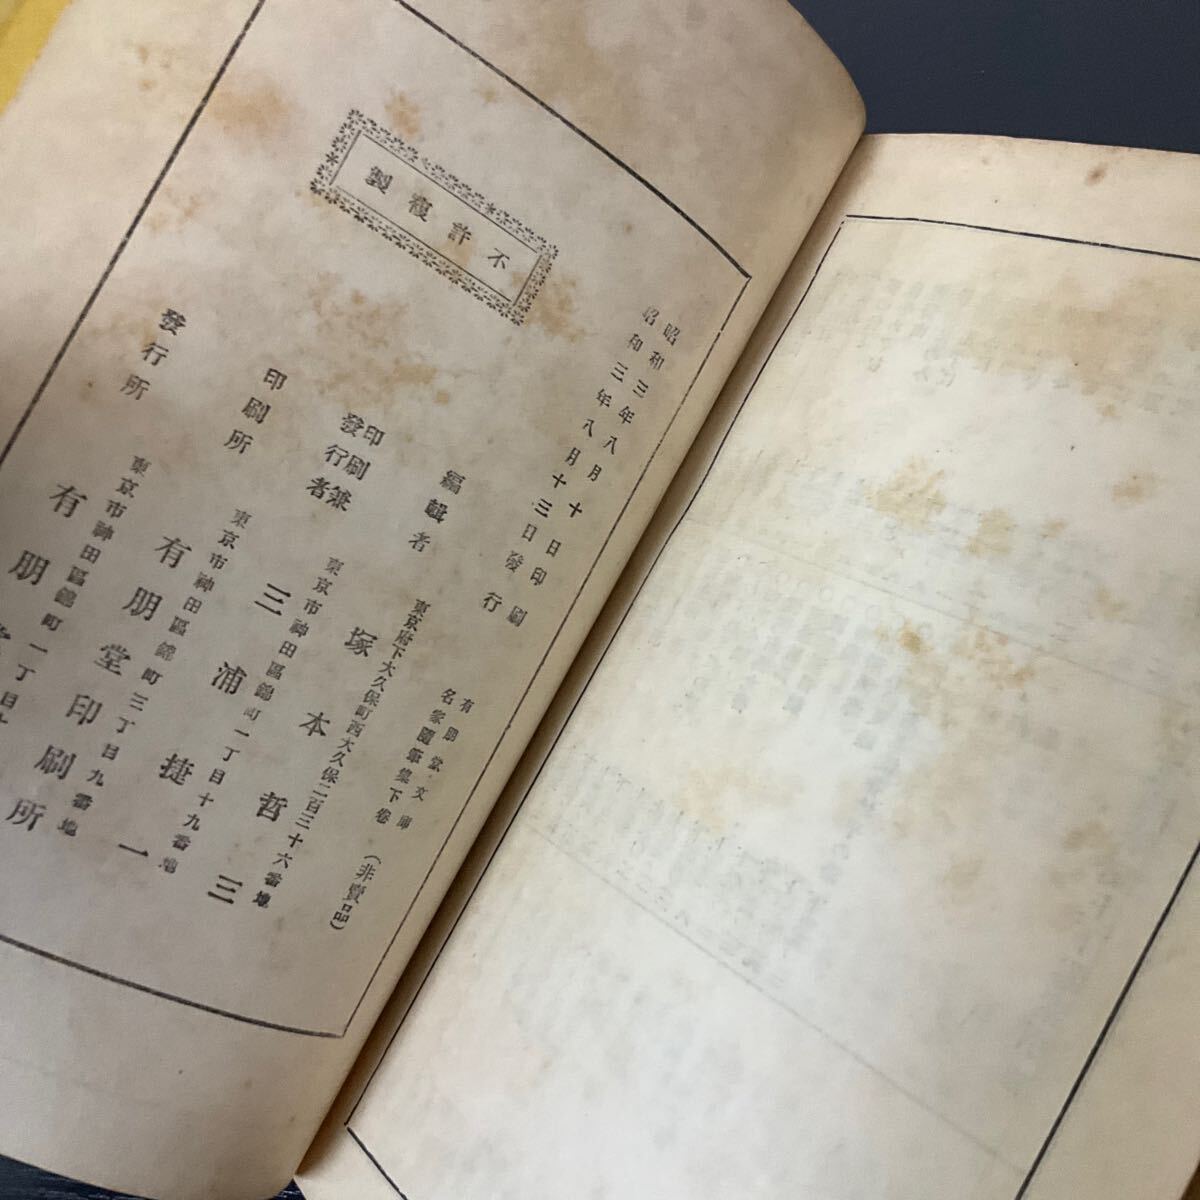 不許複製
昭和三年八月十日印刷
昭和三年八月十三日發行
有朋堂文庫
名家隨筆集下卷
(非賣品)
編輯者
東京府下大久保町西大久保二百三十六番地
塚本哲三
印刷兼
發行者
東京市神田區錦町一丁目十九番地
三浦捷一
印刷所
東京市神田區錦町三丁目九番地
有朋堂印刷所
發行所
東京市神田區錦町一丁目十
有朋堂